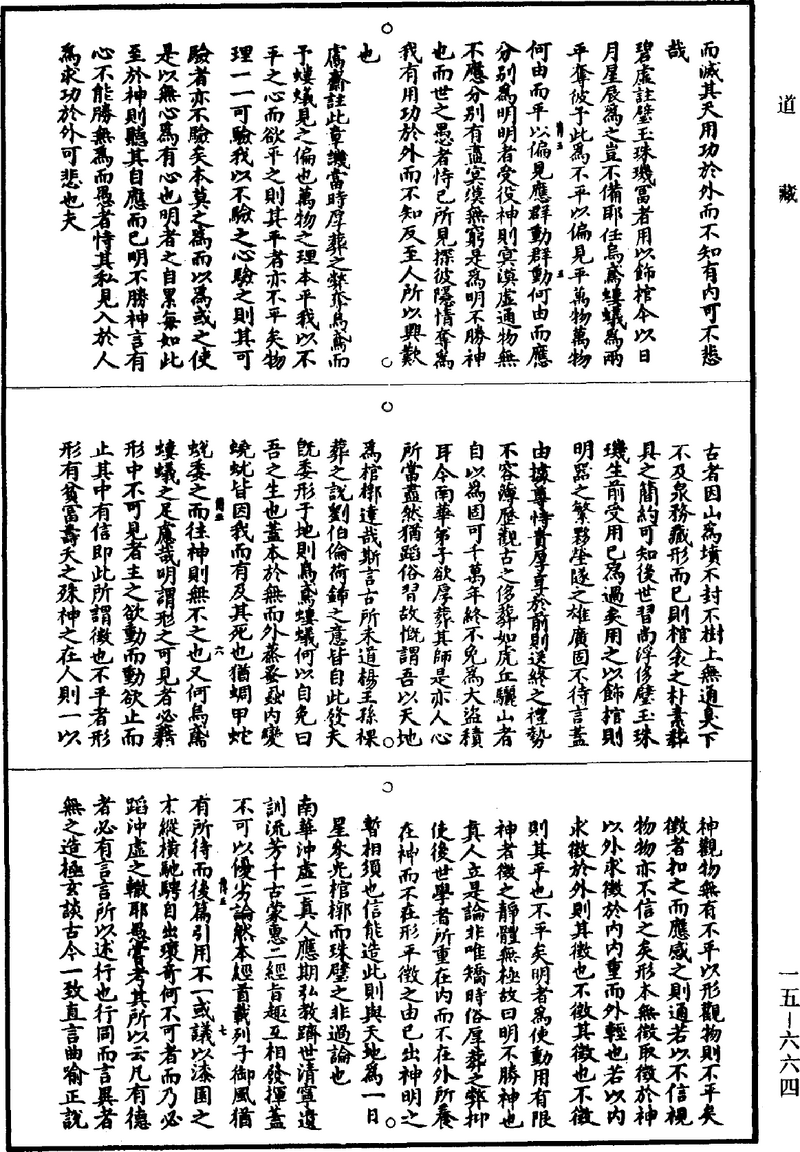 道藏
而滅其天用功於外而不知有內可不悲
哉
碧虛註璧玉珠璣富者用以飾棺今以日
月星辰為之豈不備耶任烏鳶螻蟻為兩
平奪彼予此為不平以偏見平萬物萬物
何由而平以偏見應群動群動何由而應
分別為明明者受役神則冥漠虛通物無
不應分別有盡冥漠無窮是為明不勝神
也而世之愚者恃已所見探彼隱情奪為
我有用功於外而不知反至人所以興歎
也
鬳齋註此章譏當時厚葬之弊奪烏鳶而
予螻蟻見之偏也萬物之理本平我以不
平之心而欲平之則其平者亦不平矣物
理一一可驗我以不驗之心驗之則其可
驗者亦不驗矣本莫之為而以為或之使
是以無心為有心也明者之自累每如此
至於神則聽其自應而已明不勝神言有
心不能勝無為而愚者恃其私見入於人
為求功於外可悲也夫
古者因山為墳不封不樹上無通臭下
不及泉務藏形而已則棺衾之朴素葬
具之簡約可知後世習尚浮侈璧玉珠
璣生前受用已為過矣用之以飾棺則
明器之繁夥塋隧之雄廣固不待言蓋
由據尊恃貴厚享於前則送終之禮勢
不容薄歷觀古之侈葬如虎丘驪山者
自以為固可千萬年終不免為大盜積
耳今南華弟子欲厚葬其師是亦人心
所當盡然猶蹈俗習故慨謂吾以天地
為棺槨達哉斯言古所未道楊王孫裸
葬之說劉伯倫荷鍤之意皆自此發夫
既委形于地則烏鳶螻蟻何以自免曰
吾之生也蓋本於無而外蒸蚤蝨內變
蟯蚘皆因我而有及其死也猶蜩甲蛇
蛻委之而往神則無不之也又何烏鳶
螻蟻之足慮哉明謂形之可見者必藉
形中不可見者主之欲動而動欲止而
止其中有信即此所謂徵也不平者形
形有貧富壽夭之殊神之在人則一以
神觀物無有不平以形觀物則不平矣
徵者扣之而應感之則通若以不信視
物物亦不信之矣形本無徵取徵於神
以外求徵於內內重而外輕也若以內
求徵於外則其徵也不徵其徵也不徵
則其平也不平矣明者為使動用有限
神者徵之靜體無極故曰明不勝神也
真人立是論非唯矯時俗厚葬之弊抑
使後世學者所重在內而不在外所養
在神而不在形平徵之由已出神明之
暫相須也信能造此則與天地為一日
星參光棺槨而珠璧之非過論也
南華沖虛二真人應期弘教躋世清寧遺
訓流芳千古蒙惠二經旨趣互相發揮蓋
不可以優劣論然本經首載列子御風猶
有所待而後篇引用不一或議以漆園之
才縱橫馳騁自出瓌奇何不可者而乃必
蹈沖虛之轍耶愚嘗考其所以云凡有德
者必有言言所以述行也行同而言異者
無之造極玄談古今一致直言曲喻正說
一五－六六四